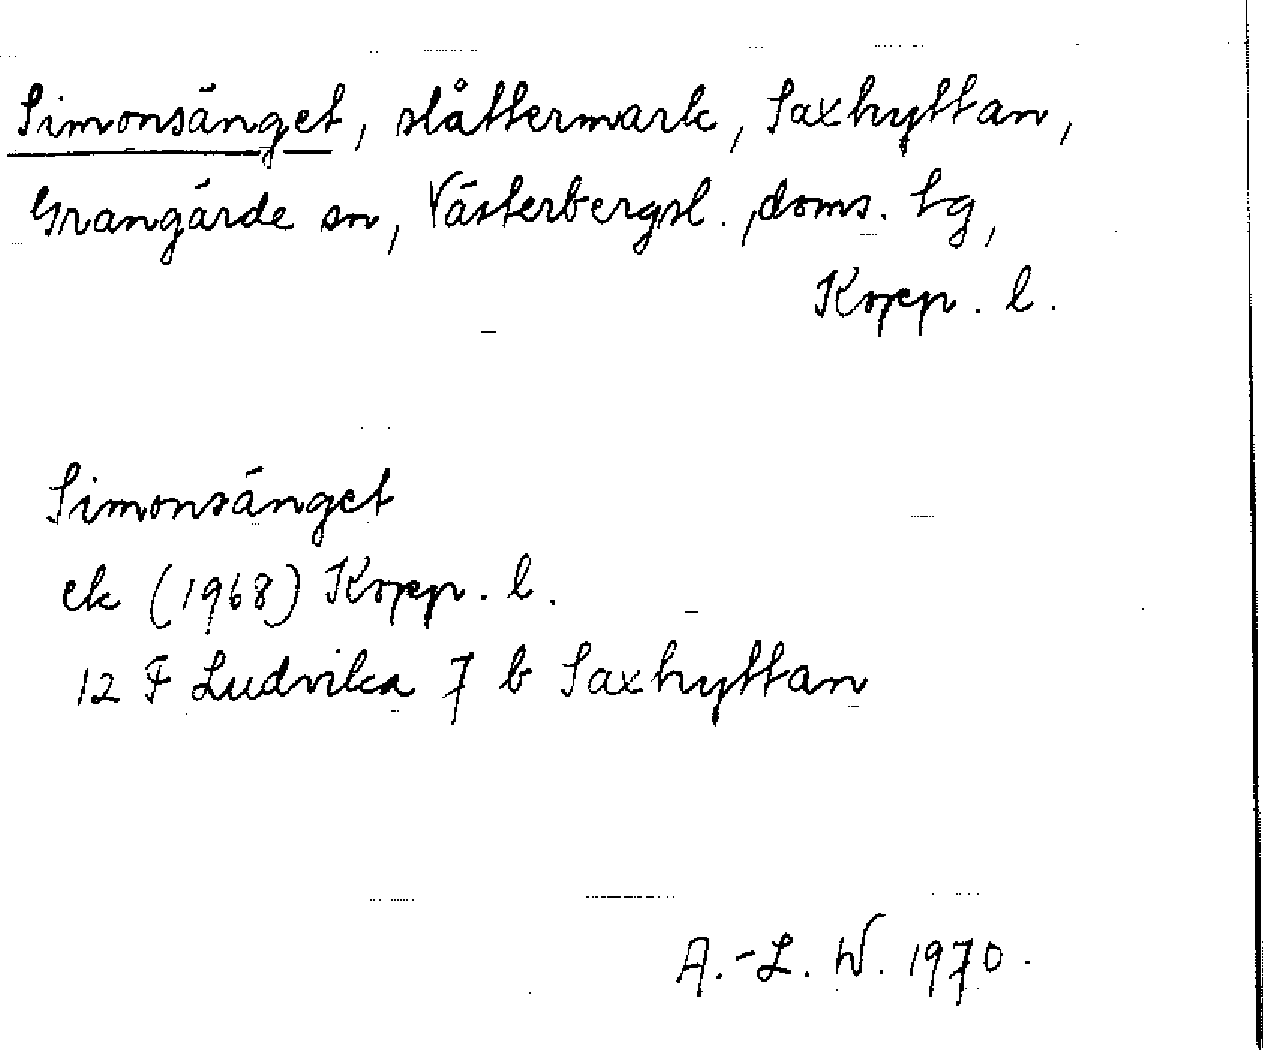 Simonsänget, slåttermark, Saxhyttan,
Grangärde sn, Västerbergsl. doms. tg,
Kopp. l.
Simonsänget
ek (1968) Kopp. l.
12 F Ludvika 7 b Saxhyttan
A.-L. W. 1970.